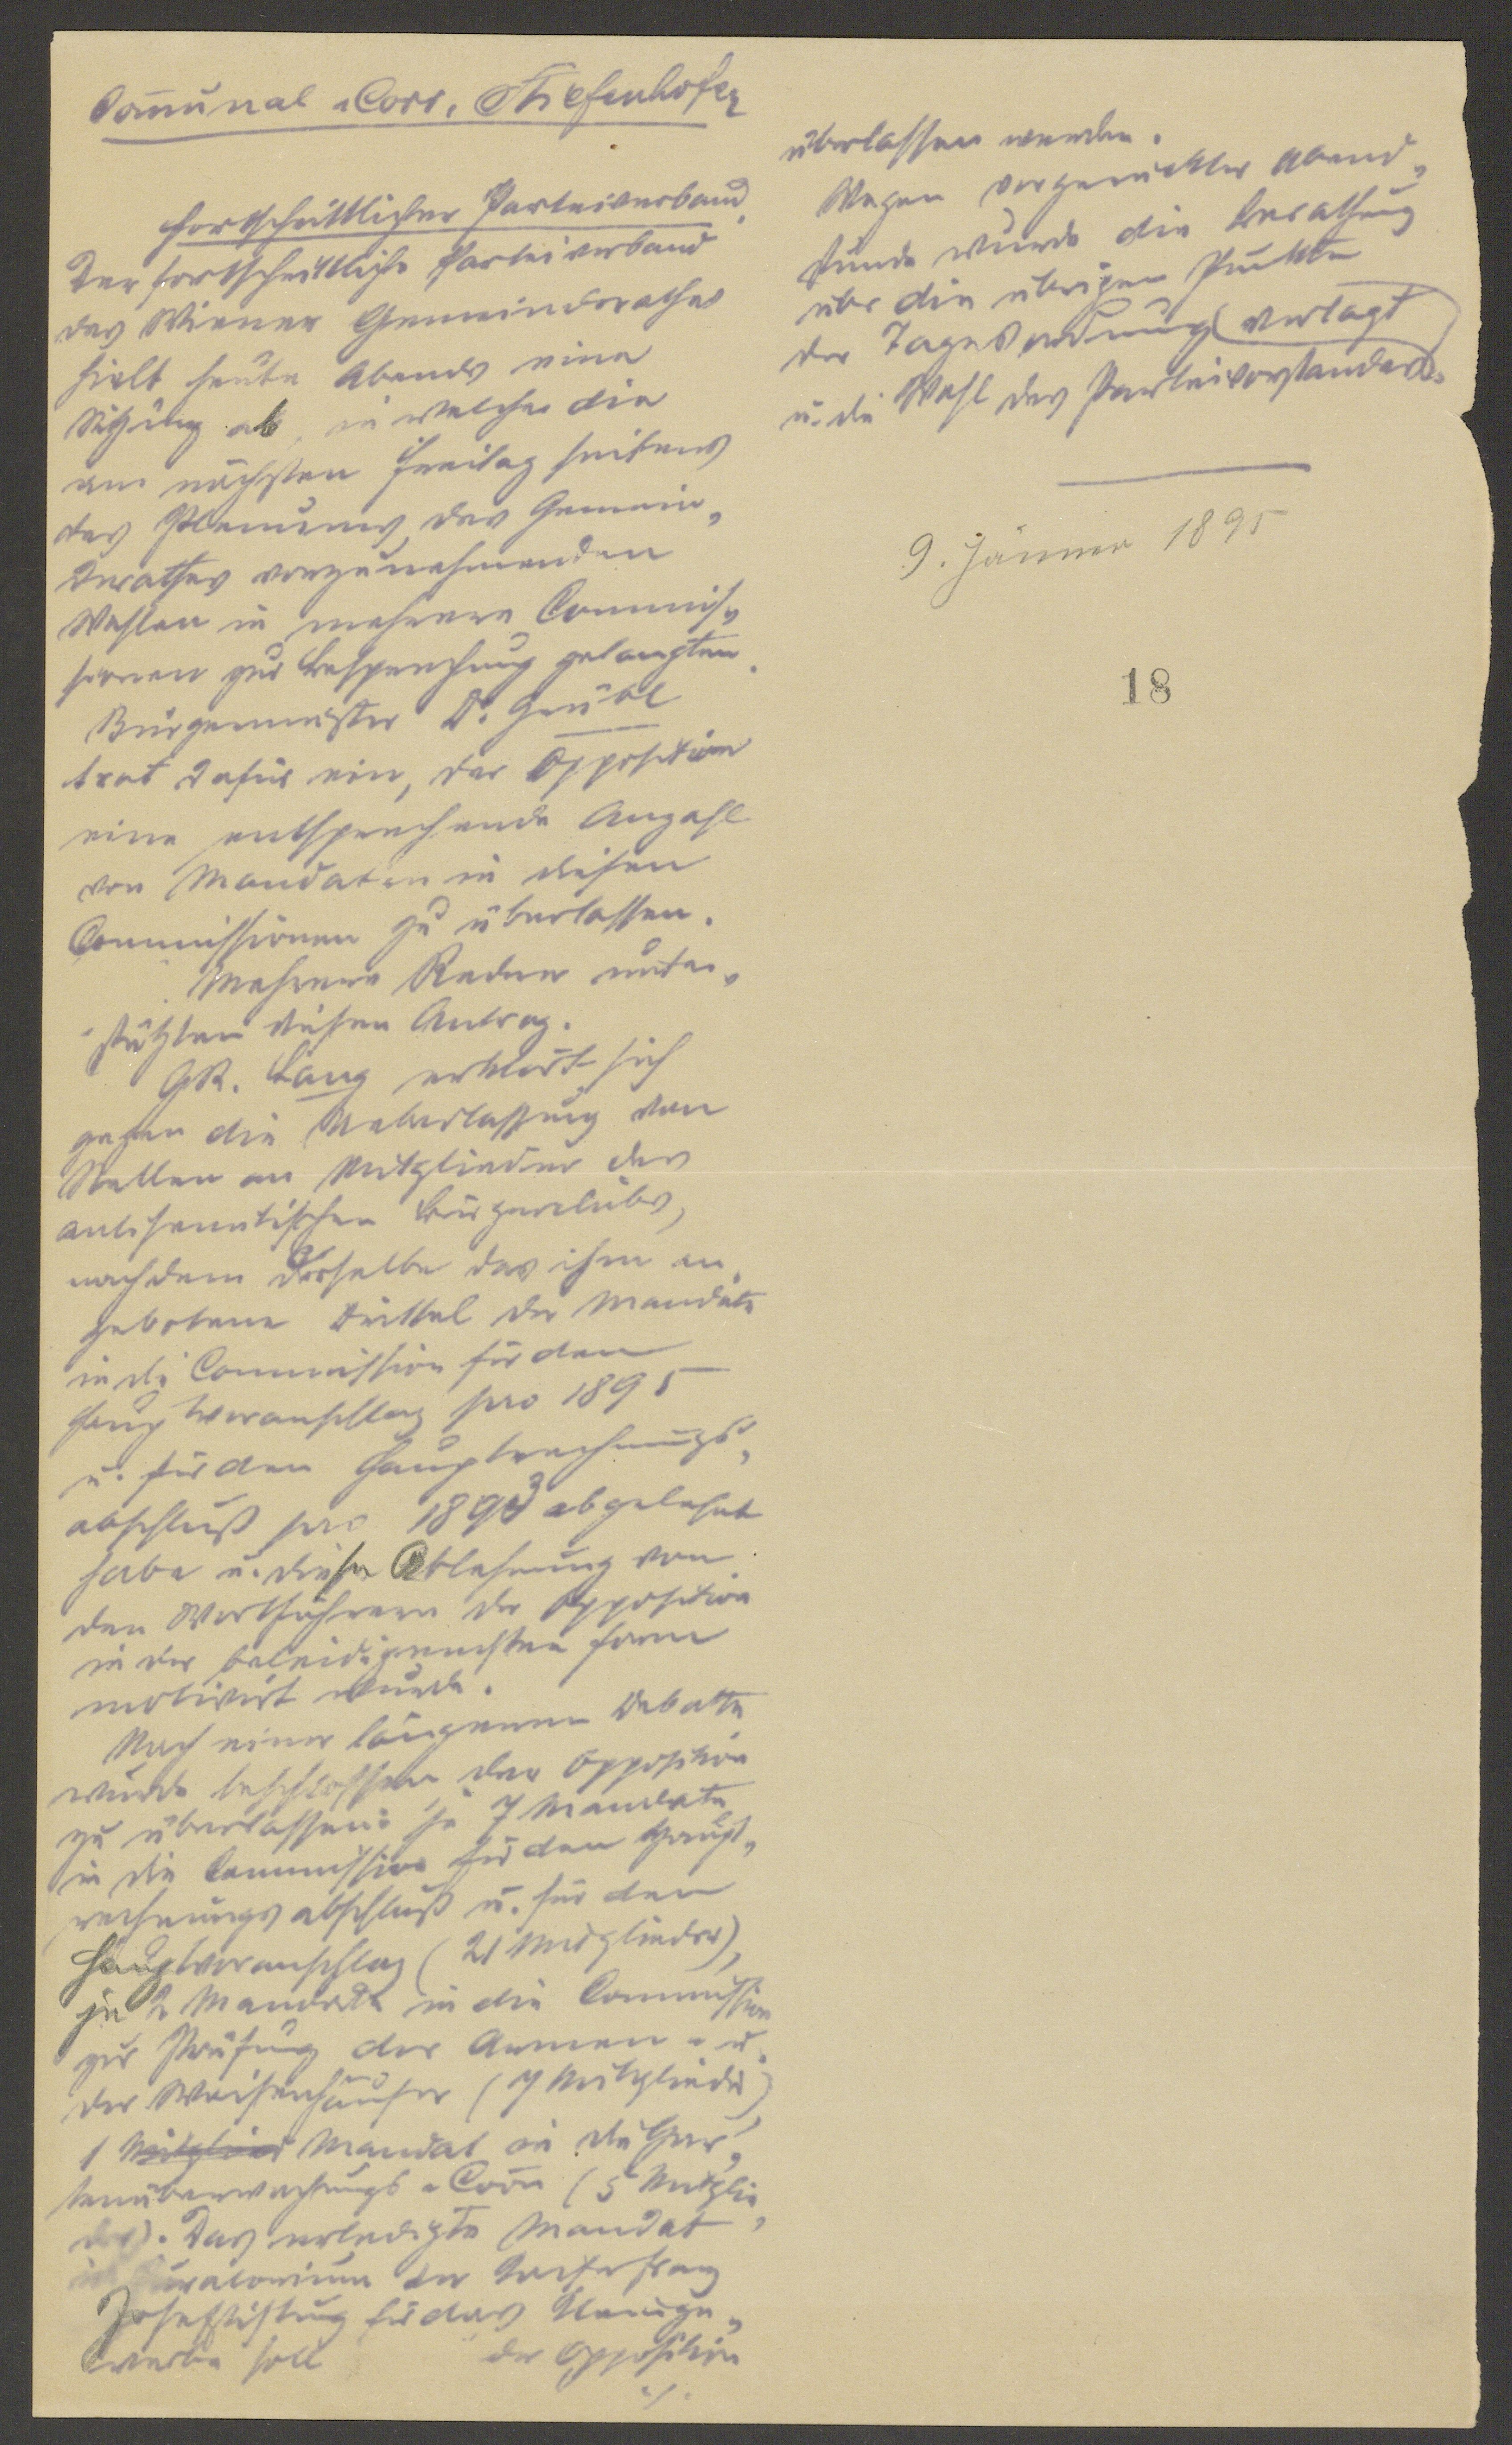 Com̄unal-Corr. Stiefenhofer
Fortschrittlicher Parteiverband.
Der fortschrittliche Parteiverband
des Wiener Gemeinderathes
hielt heute Abends eine
Sitzung ab, in welcher die
am nächsten Freitag seitens
des Plenums des Gemein„
derathes vorzunehmenden
Wahlen in mehrere Commis„
sionen zur Besprechung gelangten.
Bürgermeister Dr. Grübl
trat dafür ein, der Opposition
eine entsprechende Anzahl
von Mandaten in diesen
Commissionen zu überlassen.
Mehrere Redner unter„
stützten diesen Antrag.
GR. Lang erklärt sich
gegen die Ueberlassung von
Stellen an Mitglieder des
antisemitischen Bürgerclubs,
nachdem derselbe das ihm an„
gebotene Drittel der Mandate
in die Commission für den
Hauptvoranschlag pro 1895
u. für den Hauptrechnungs„
abschluß pro 1893 abgelehnt
habe u. diese Ablehnung von
den Wortführern der Opposition
in der beleidigendsten Form
motivirt wurde.
Nach einer längeren Debatte
wurde beschlossen, der Opposition
zu überlassen: je 7 Mandate
in die Commission für den Haupt„
rechnungsabschluß u. für den
Hauptvoranschlag (21 Mitglieder),
je 2 Mandate in die Commission
zur Prüfung der Armen- u.
der Waisenhäuser (7 Mitglieder)
1 Mitglied Mandat in die Gar„
tenüberwachungs-Com̄ (5 Mitglie„
der). Das erledigte Mandat
im Curatorium der Kaiser Franz
Josefstiftung für das Kleinge„
werbe soll der Opposition
./.
überlassen werden.
Wegen vorgerückter Abend„
stunde wurde die Berathung
über die übrigen Punkte
der Tagesordnung (vertagt
u. die Wahl des Parteivorstandes).
9. Jänner 1895
18